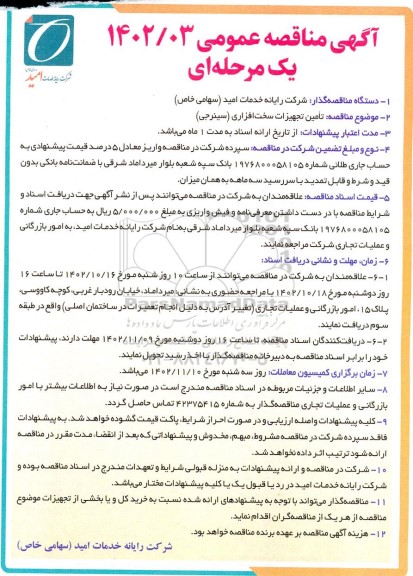 آگهی مناقصه عمومی ۱۴۰۲/۰۳
یک مرحله‌ای
شرکت رایانه خدمات امید
۱- دستگاه مناقصه‌گذار: شرکت رایانه خدمات امید (سهامی خاص)
۲- موضوع مناقصه: تأمین تجهیزات سخت‌افزاری (سینرجی)
۳- مدت اعتبار پیشنهادات: از تاریخ ارائه اسناد به مدت ۱ ماه می‌باشد.
۴- نوع و مبلغ تضمین شرکت در مناقصه: سپرده شرکت در مناقصه واریز معادل ۵ درصد قیمت پیشنهادی به
حساب جاری طلائی شماره ۱۹۷۶۸۰۰۰۵۸۱۰۵ بانک سپه شعبه بلوار میرداماد شرقی یا ضمانت‌نامه بانکی بدون
قید و شرط و قابل تمدید با سررسید سه ماهه به همان میزان.
۵- قیمت اسناد مناقصه: علاقه‌مندان به شرکت در مناقصه می‌توانند پس از نشر آگهی جهت دریافت اسناد و
شرایط مناقصه با در دست داشتن معرفی‌نامه و فیش واریزی به مبلغ ۵/۰۰۰/۰۰۰ ریال به حساب جاری شماره
۱۹۷۶۸۰۰۰۵۸۱۰۵ بانک سپه شعبه بلوار میرداماد شرقی به‌نام شرکت رایانه خدمات امید، به امور بازرگانی
و عملیات تجاری شرکت مراجعه نمایند.
۶- زمان، مهلت و نشانی دریافت اسناد:
۱-۶- علاقه‌مندان به شرکت در مناقصه می‌توانند از ساعت ۱۰ روز شنبه مورخ ۱۴۰۲/۱۰/۱۶ تا ساعت ۱۶
روز دوشنبه مورخ ۱۴۰۲/۱۰/۱۸ با مراجعه حضوری به نشانی: میرداماد، خیابان رودبار غربی، کوچه کاووسی،
پلاک ۱۵، امور بازرگانی و عملیات تجاری (تغییر آدرس به دلیل انجام تعمیرات در ساختمان اصلی) واقع در طبقه
سوم دریافت نمایند.
۲-۶- دریافت‌کنندگان اسناد مناقصه، تا ساعت ۱۶ روز دوشنبه مورخ ۱۴۰۲/۱۱/۰۹ مهلت دارند، پیشنهادات
خود را برابر اسناد مناقصه به دبیرخانه مناقصه‌گذار با اخذ رسید تحویل نمایند.
۷- زمان برگزاری کمیسیون معاملات: روز سه شنبه مورخ ۱۴۰۲/۱۱/۱۰ می‌باشد.
۸- سایر اطلاعات و جزئیات مربوطه در اسناد مناقصه مندرج است در صورت نیاز به اطلاعات بیشتر با امور
بازرگانی و عملیات تجاری مناقصه‌گذار به شماره ۴۲۳۷۵۴۱۵ تماس حاصل گردد.
۹- کلیه پیشنهادات واصله ارزیابی و در صورت احراز شرایط، پاکت قیمت گشوده خواهد شد. به پیشنهادات
فاقد سپرده شرکت در مناقصه، مشروط، مبهم، مخدوش و پیشنهاداتی که بعد از انقضاء مدت مقرر در مناقصه
ارائه شود ترتیب اثر داده نخواهد شد.
۱۰- شرکت در مناقصه و ارائه پیشنهادات به منزله قبولی شرایط و تعهدات مندرج در اسناد مناقصه بوده و
شرکت رایانه خدمات امید در رد یا قبول یک یا کلیه پیشنهادات مختار می‌باشد.
۱۱- مناقصه‌گذار می‌تواند با توجه به پیشنهادهای ارائه شده نسبت به خرید کل و یا بخشی از تجهیزات موضوع
مناقصه از هر یک از مناقصه‌گران اقدام نماید.
۱۲- هزینه آگهی مناقصه بر عهده برنده مناقصه خواهد بود.
شرکت رایانه خدمات امید (سهامی خاص)